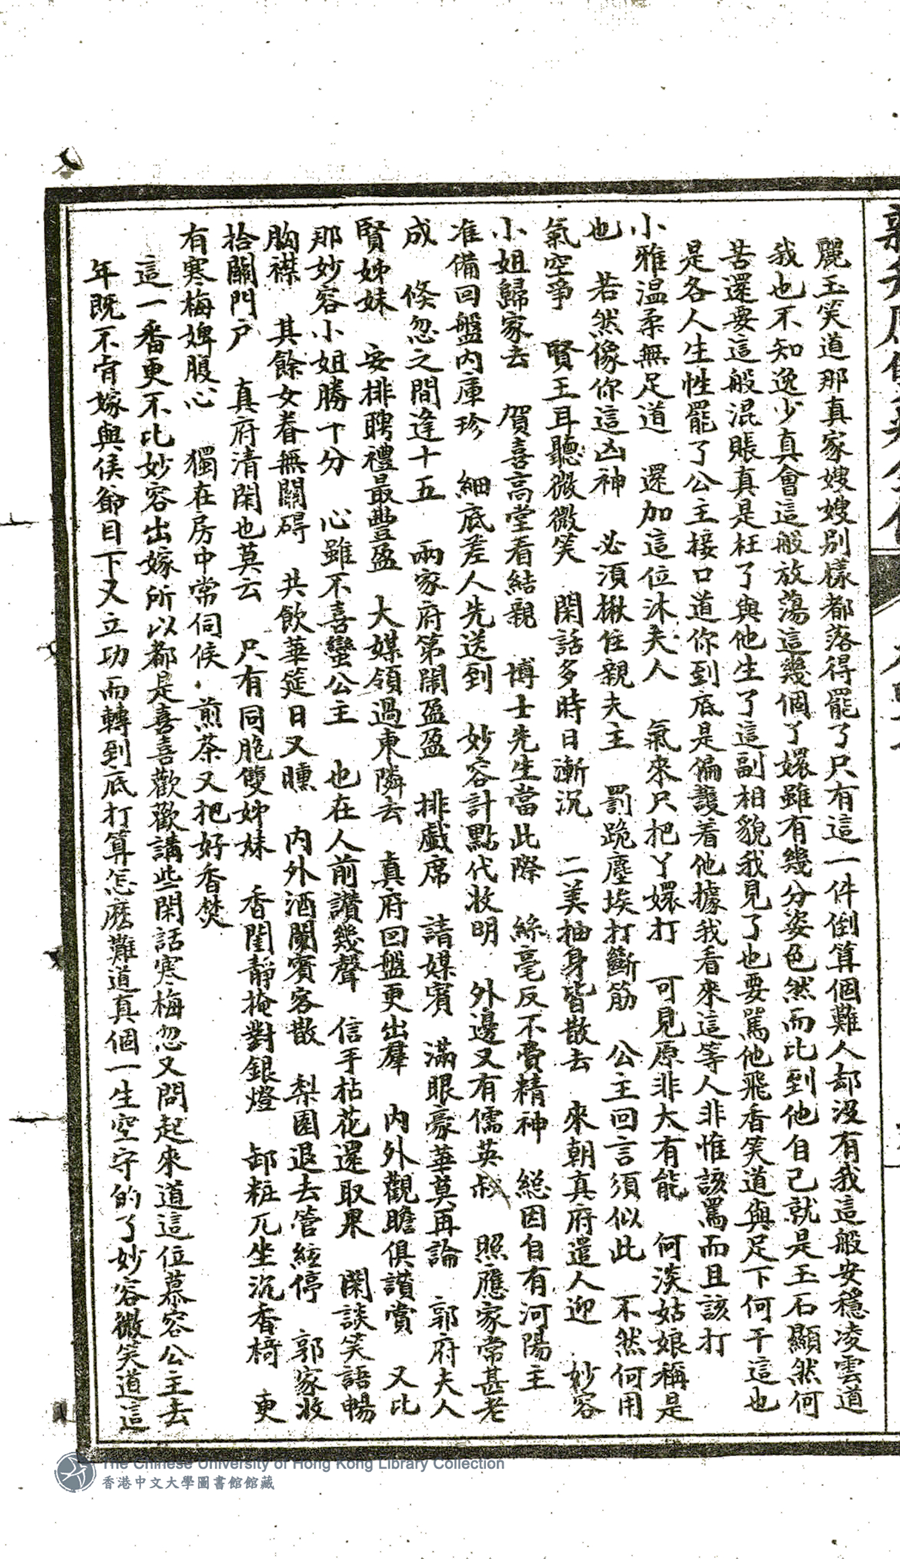 麗玉笑道那真家嫂嫂別樣都落得罷了只有這一件倒算個難人却沒有我這般安穩凌雲道
我也不知逸少真會這般放蕩這幾個丫嬛雖有幾分姿色然而比到他自己就是玉石顯然何
苦還要這般混賬真是枉了與他生了這副相貌我見了也要罵他飛香笑道與足下何干這也
是各人生性罷了公主接口道你到底是偏護着他據我看來這等人非惟該罵而且該打
小雅温柔無足道 還加這位沐夫人 氣來只把丫嬛打 可見原非大有能 何淡姑娘稱是
也 若然像你這凶神 必須揪住親夫主 罰跪塵埃打斷筋 公主回言須似此 不然何用
氣空爭 賢王耳聽微微笑 閑話多時日漸沉 二美抽身皆散去 來朝真府遣人迎 妙容
小姐歸家去 賀喜高堂看結親 博士先生當此際 絲毫反不費精神 總因自有河陽主
准備回盤內庫珍 細底差人先送到 妙容計點代妝明 外邊又有儒英叔 照應家常甚老
成 倏忽之間逢十五 兩家府第鬧盈盈 排戲席 請媒賓 滿眼豪華莫再論 郭府夫人
賢姊妹 安排聘禮最豐盈 大媒領過東隣去 真府回盤更出羣 內外觀瞻俱讃賞 又比
那妙容小姐勝十分 心雖不喜蠻公主 也在人前讃幾聲 信手枯花還取果 閑談笑語暢
胸襟 其餘女眷無關碍 共飲華筵日又曛 內外酒闌賓客散 梨園退去管絃停 郭家收
拾關門户 真府清閑也莫云 只有同胞雙姊妹 香閨靜掩對銀燈 卸粧兀坐沉香椅 更
有寒梅婢腹心 獨在房中常伺候 煎茶又把好香焚
這一番更不比妙容出嫁所以都是喜喜歡歡講些閑話寒梅忽又問起來道這位慕容公主去
年既不肯嫁與侯爺目下又立功而轉到底打算怎麽難道真個一生空守的了妙容微笑道這
The Chinese University of Hong Kong Library Collection
香港中文大學圖書館館藏